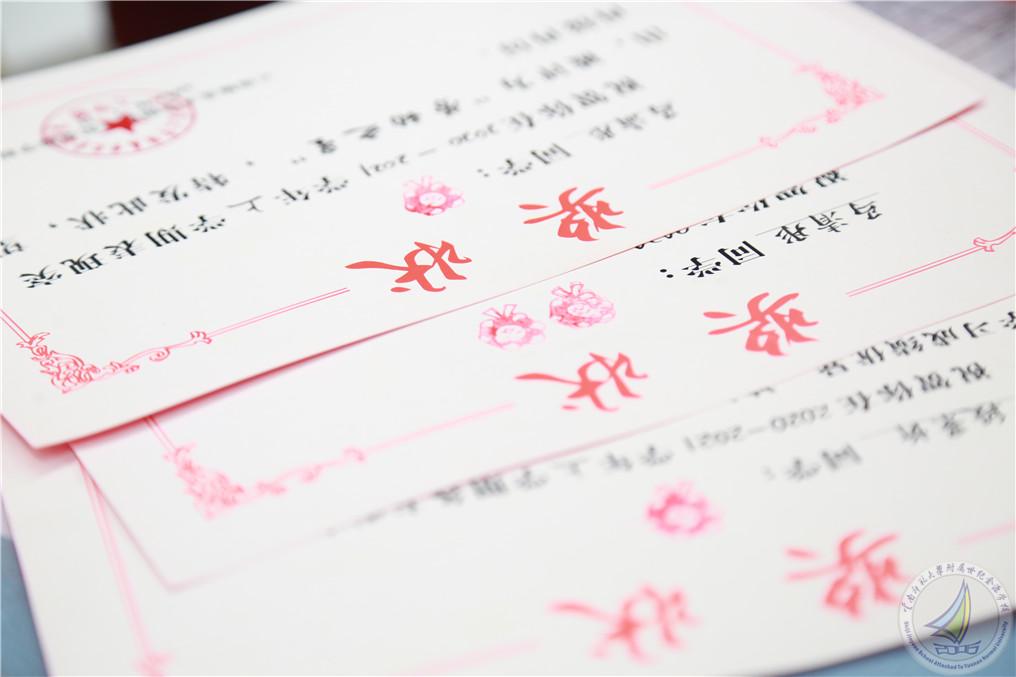 奖状
马清彤 同学:
祝贺你在2020—2021学年上学期表现突
出,被评为“劳动之星”,特发此状,望
再接再厉
奖状
马清彤 同学:
祝贺你在2020
奖状
同学:
祝贺你在2020-2021学年上学期
学习成绩优异
云南师范大學附属世纪金源学校
Shiji Jinyuan School Attached To Yunnan Normal University